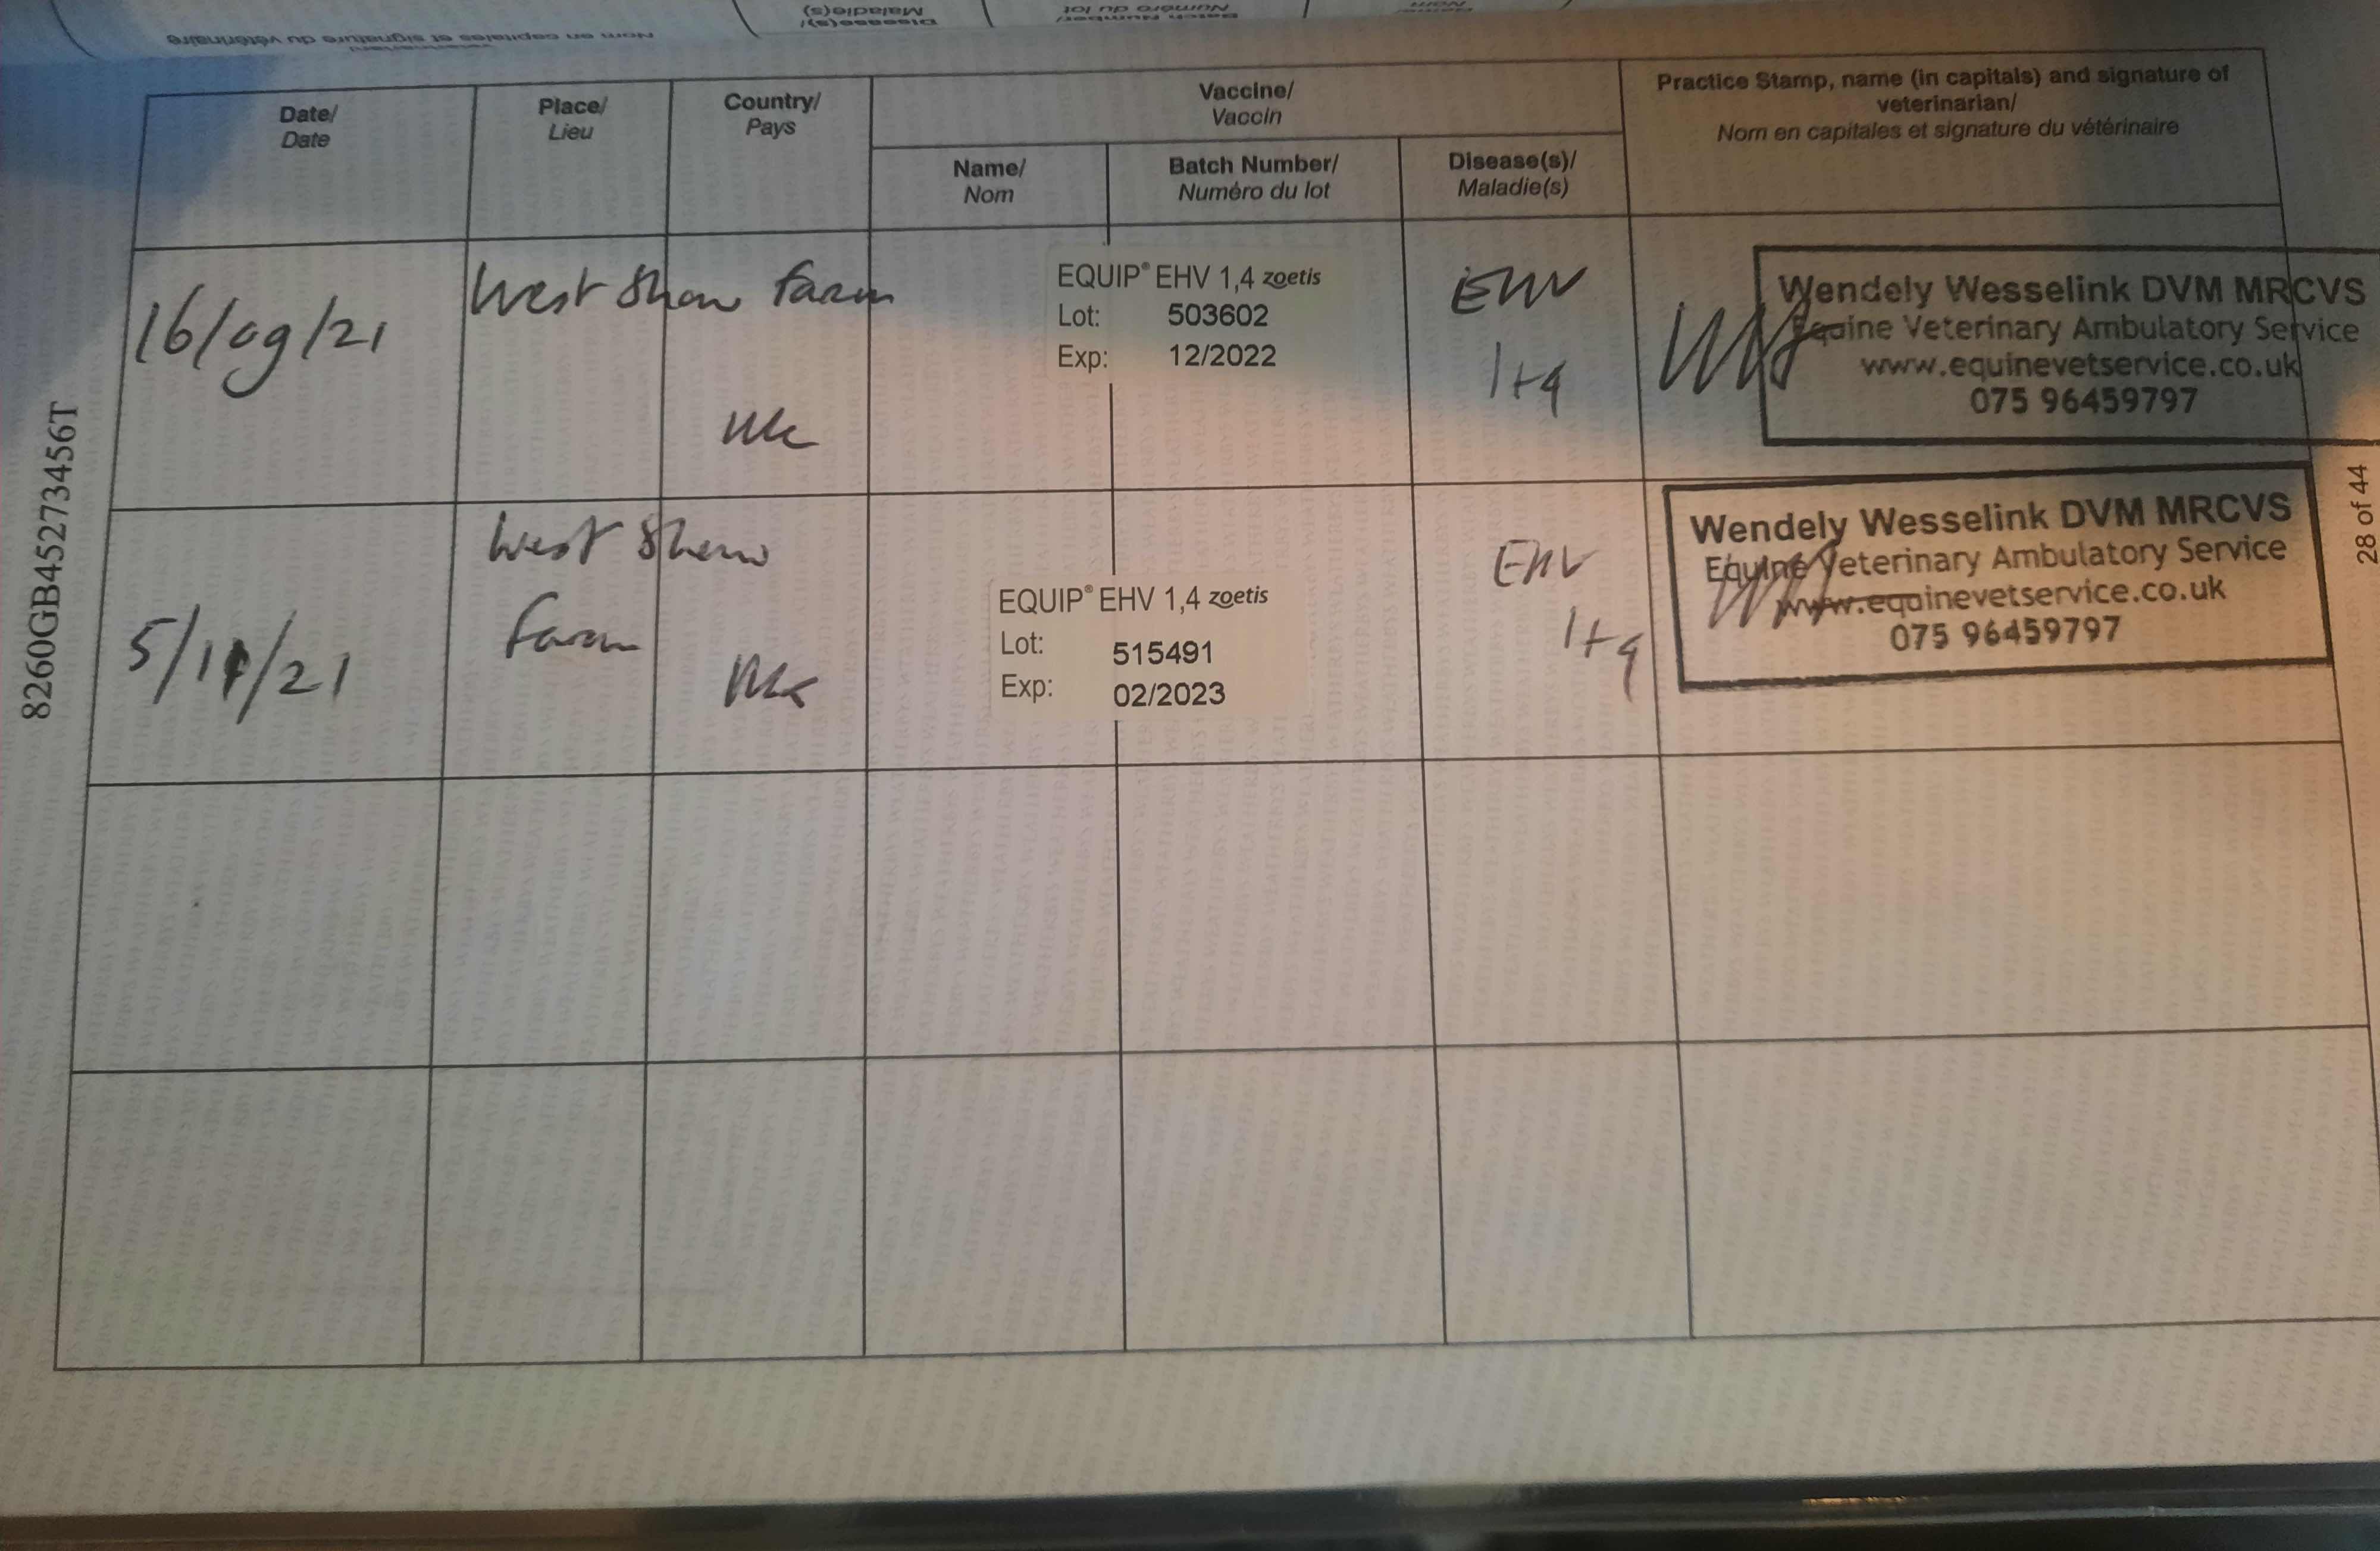 Nom en capitales et signature du vétérinaire
Disease(s)/
Maladie(s)
Batch Number/
Numéro du lot
Date/
Date
Place/
Lieu
Country/
Pays
Vaccine/
Vaccin
Name/
Nom
Batch Number/
Numéro du lot
Disease(s)/
Maladie(s)
Practice Stamp, name (in capitals) and signature of
veterinarian/
Nom en capitales et signature du vétérinaire
16/09/21
West Show Farm
UK
EQUIP® EHV 1,4 zoetis
Lot: 503602
Exp: 12/2022
EHV
1+4
Wendely Wesselink DVM MRCVS
Equine Veterinary Ambulatory Service
www.equinevetservice.co.uk
075 96459797
5/11/21
West Show
Farm
UK
EQUIP® EHV 1,4 zoetis
Lot: 515491
Exp: 02/2023
EHV
1+4
Wendely Wesselink DVM MRCVS
Equine Veterinary Ambulatory Service
www.equinevetservice.co.uk
075 96459797
8260GB45273456T
28 of 44